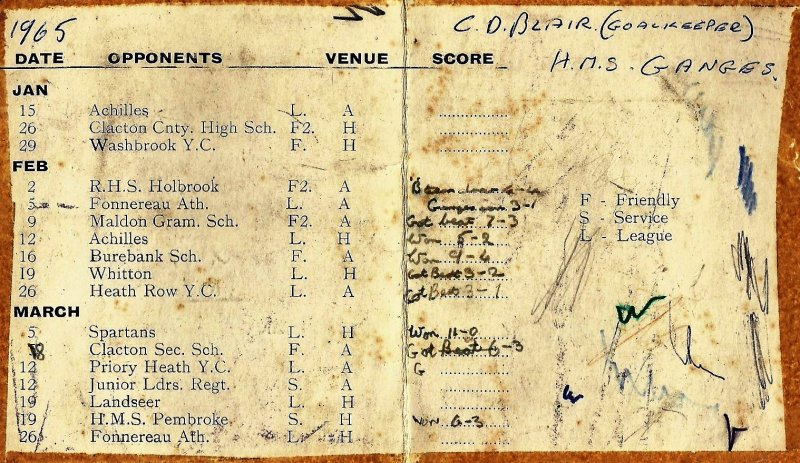 1965
C. D. BLAIR. (GOALKEEPER)
H.M.S. GANGES.
DATE OPPONENTS VENUE SCORE
JAN
15 Achilles L. A
26 Clacton Cnty. High Sch. F2. H
29 Washbrook Y.C. F. H
FEB
2 R.H.S. Holbrook F2. A
5 Fonnereau Ath. L. A Ganges win 3-1
9 Maldon Gram. Sch. F2. A Got beat 7-3
12 Achilles L. H Won 5-2
16 Burebank Sch. F. A Won 9-4
19 Whitton L. H Got Beat 3-2
26 Heath Row Y.C. L. A Got Beat 3-1
F - Friendly
S - Service
L - League
MARCH
5 Spartans L. H Won 11-0
8 Clacton Sec. Sch. F. A Got Beat 6-3
12 Priory Heath Y.C. L. A G
12 Junior Ldrs. Regt. S. A
19 Landseer L. H
19 H.M.S. Pembroke S. H WON 6-3
26 Fonnereau Ath. L. H